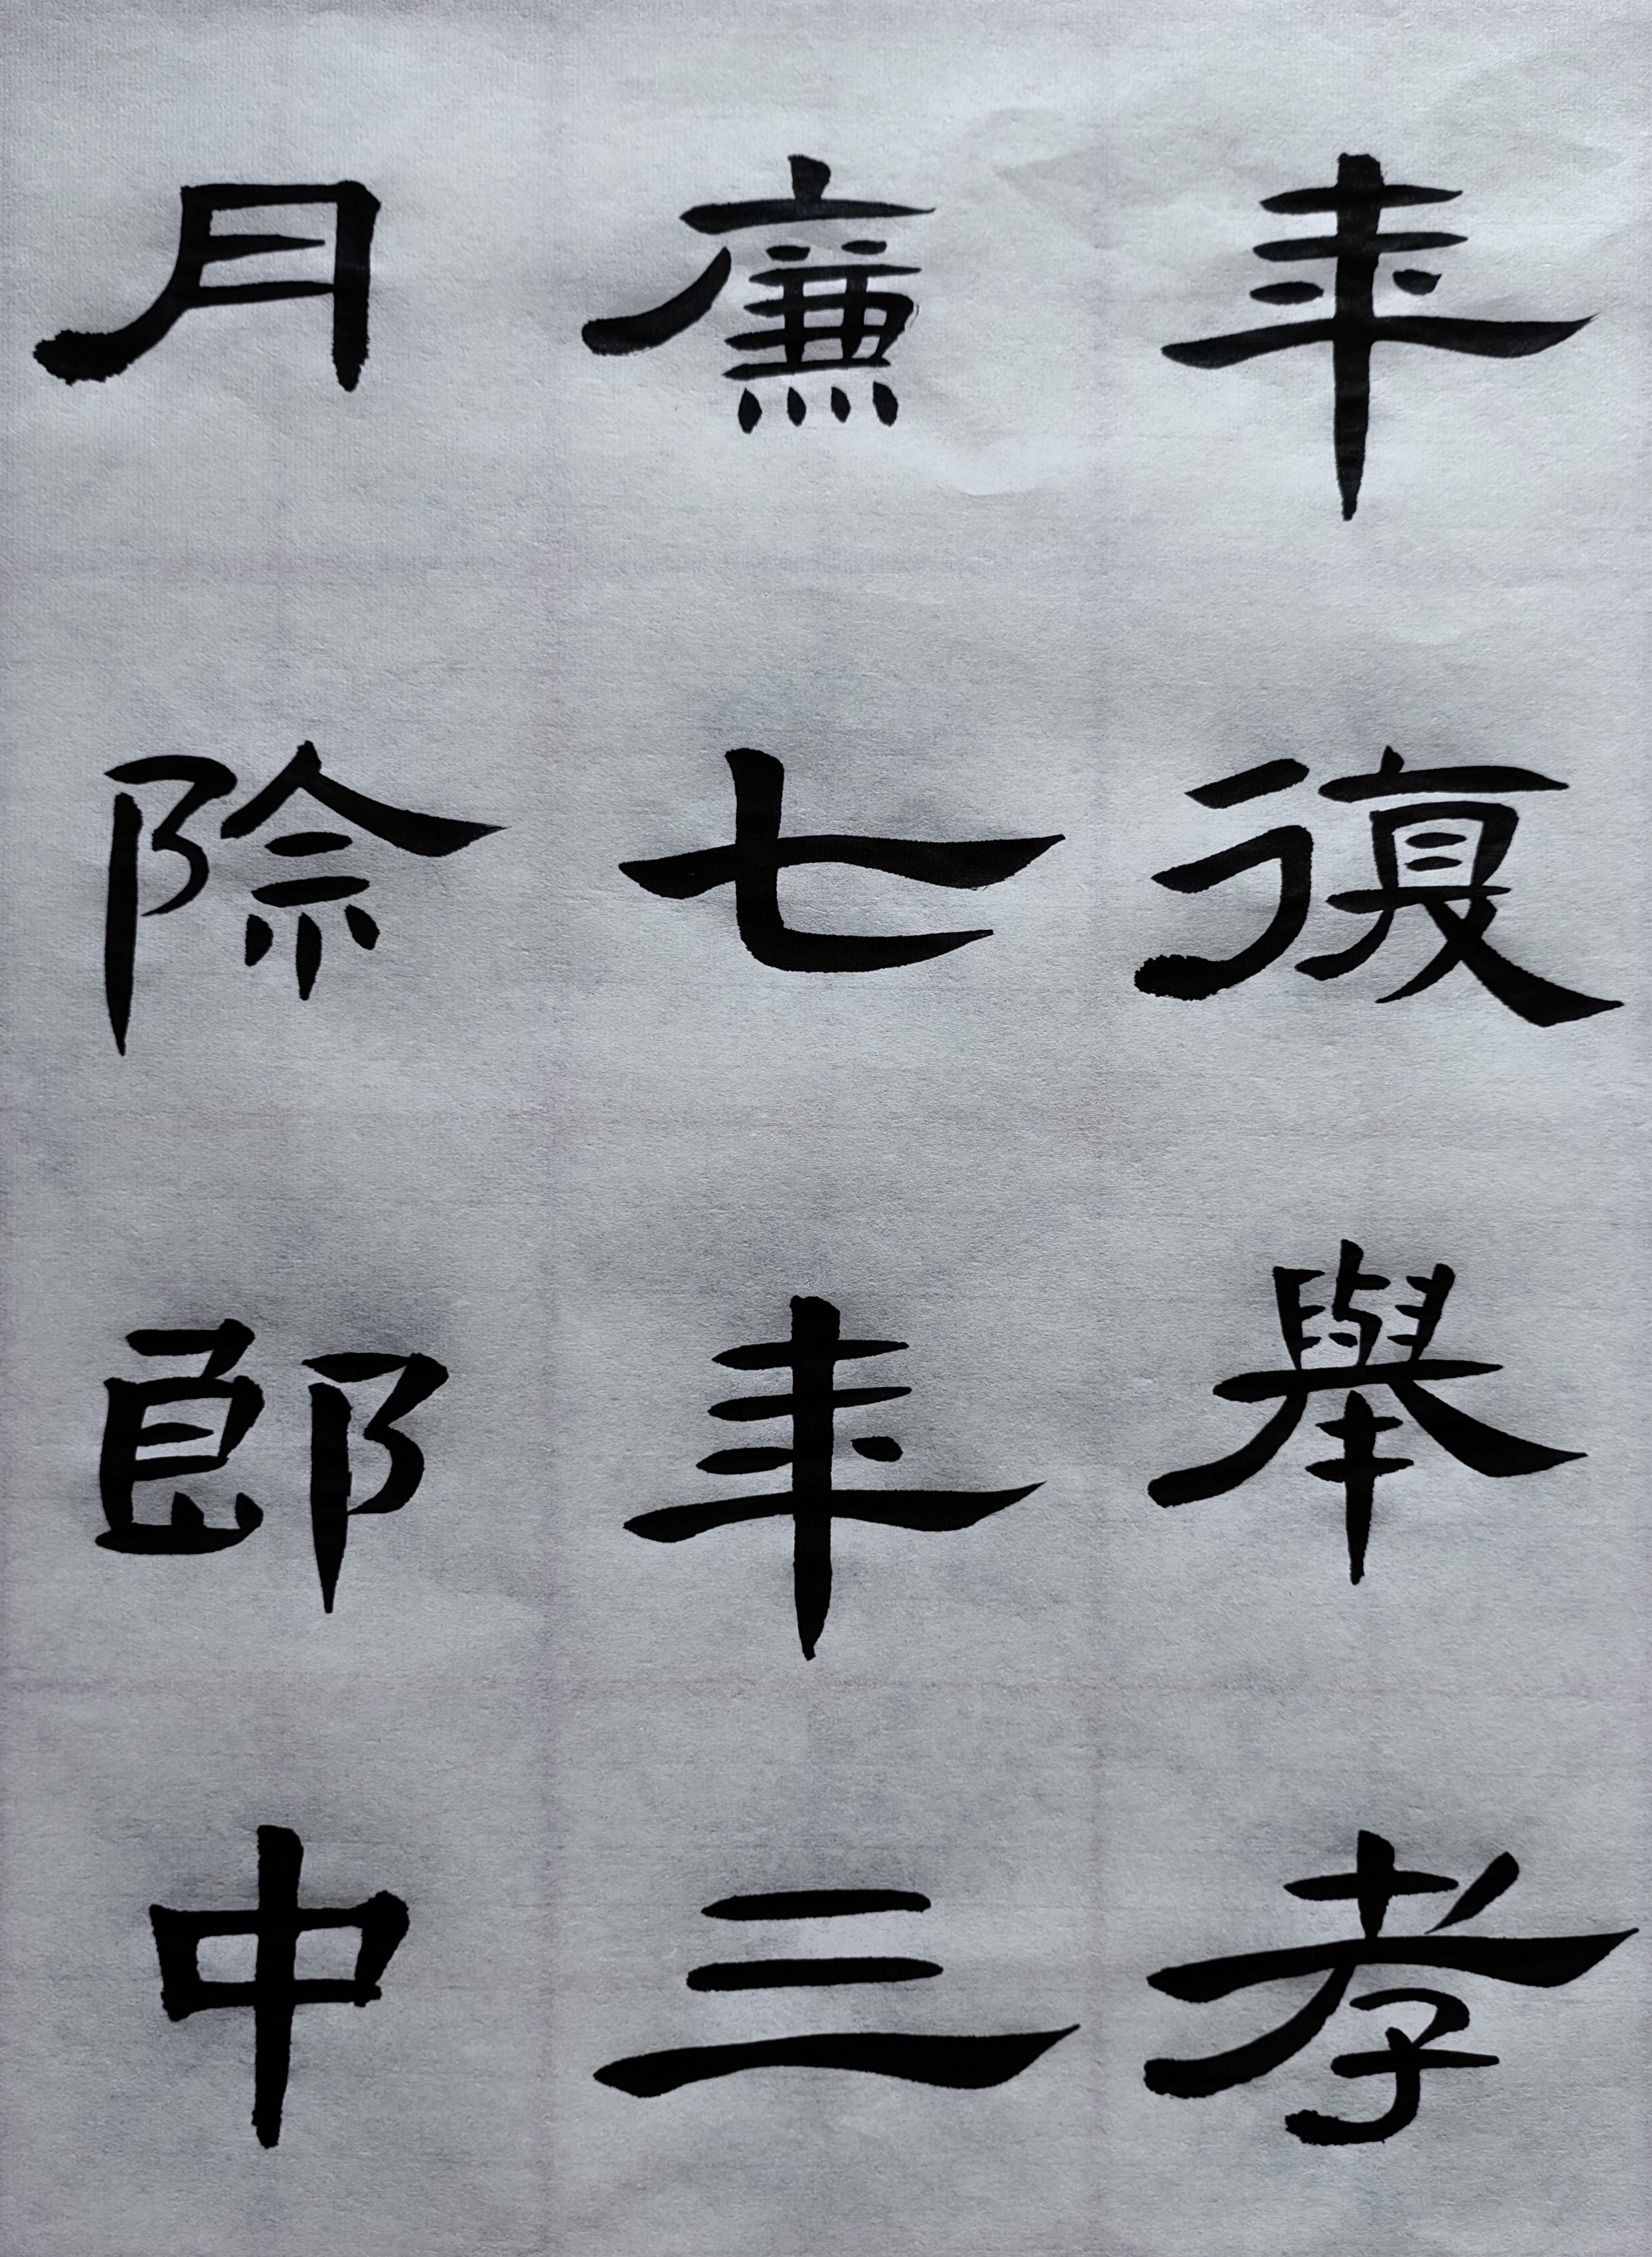 年復舉孝
廉七年三
月除郎中